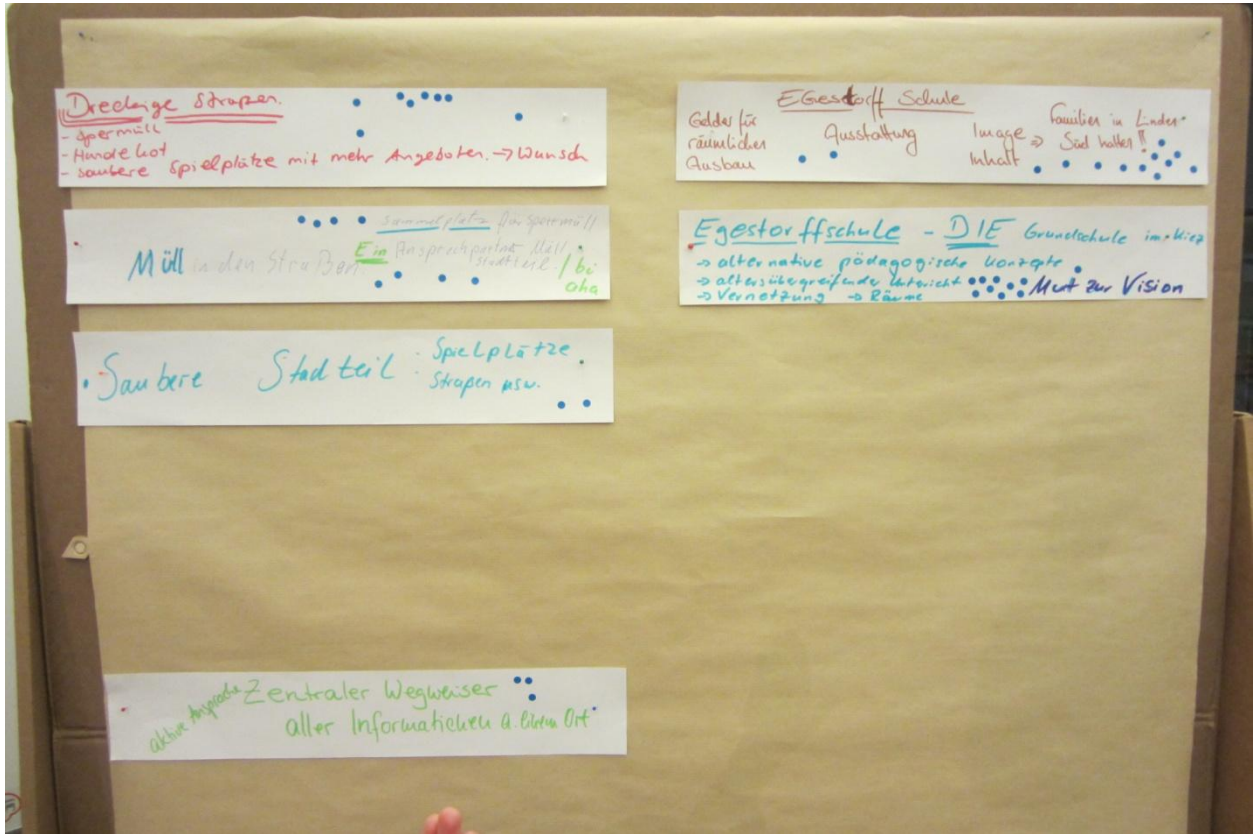 Dreckige Straßen.
- Spermüll
- Hundekot
- saubere Spielplätze mit mehr Angeboten. → Wunsch
Sammelplatz für Sperrmüll
Müll in den Straßen. Ein Ansprechpartner Müll / bi
Stadtteil aha
Saubere Stadtteil : Spielplätze
Straßen usw.
aktive Ansprache Zentraler Wegweiser
aller Informationen a. einem Ort
EGestorff Schule
Gelder für
räumlichen
Ausbau
Ausstattung
Image ⇒
Inhalt
Familien in Linden-
Süd halten!!
Egestorffschule - DIE Grundschule im Kiez
→ alternative pädagogische Konzepte
→ altersübergreifender Unterricht
→ Vernetzung → Räume
Mut zur Vision